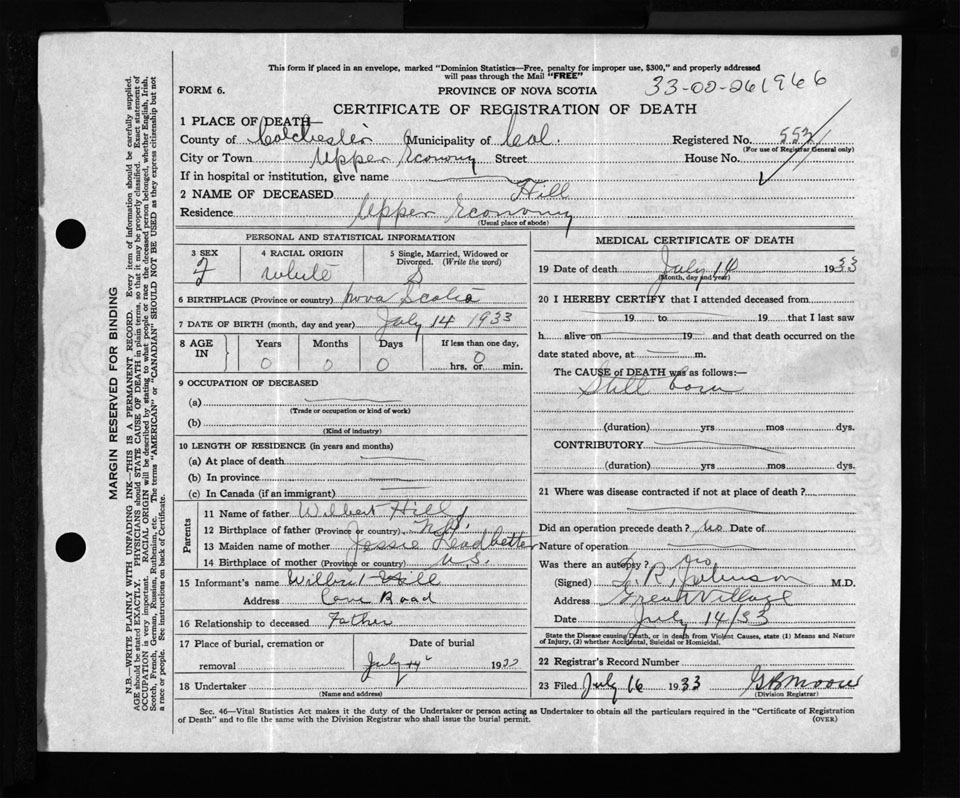 This form if placed in an envelope, marked "Dominion Statistics—Free, penalty for improper use, $300," and properly addressed
will pass through the Mail "FREE"
33-02-261966
FORM 6.
PROVINCE OF NOVA SCOTIA
CERTIFICATE OF REGISTRATION OF DEATH
1 PLACE OF DEATH
County of Colchester Municipality of Col. Registered No. 553
(For use of Registrar General only)
City or Town Upper Economy Street House No.
If in hospital or institution, give name
2 NAME OF DECEASED Hill
Residence Upper Economy
(Usual place of abode)
PERSONAL AND STATISTICAL INFORMATION
3 SEX 4 RACIAL ORIGIN 5 Single, Married, Widowed or Divorced. (Write the word)
F White S
6 BIRTHPLACE (Province or country) Nova Scotia
7 DATE OF BIRTH (month, day and year) July 14 1933
8 AGE IN Years Months Days If less than one day,
0 0 0 0 hrs, or min.
9 OCCUPATION OF DECEASED
(a)
(Trade or occupation or kind of work)
(b)
(Kind of industry)
10 LENGTH OF RESIDENCE (in years and months)
(a) At place of death
(b) In province
(c) In Canada (if an immigrant)
Parents
11 Name of father Wilbert Hill
12 Birthplace of father (Province or country) N.B.
13 Maiden name of mother Jessie Leadbetter
14 Birthplace of mother (Province or country) U.S.
15 Informant's name Wilbert Hill
Address Cove Road
16 Relationship to deceased Father
17 Place of burial, cremation or removal Date of burial
July 14 1933
18 Undertaker
(Name and address)
MEDICAL CERTIFICATE OF DEATH
19 Date of death July 14 1933
(Month, day and year)
20 I HEREBY CERTIFY that I attended deceased from
19 to 19 that I last saw
h alive on 19 and that death occurred on the
date stated above, at m.
The CAUSE of DEATH was as follows:—
Still born
(duration) yrs mos dys.
CONTRIBUTORY
(duration) yrs mos dys.
21 Where was disease contracted if not at place of death?
Did an operation precede death? no Date of
Nature of operation
Was there an autopsy? no
(Signed) T. R. Johnson M.D.
Address Great Village
Date July 14/33
State the Disease causing Death, or in death from Violent Causes, state (1) Means and Nature
of Injury, (2) whether Accidental, Suicidal or Homicidal.
22 Registrar's Record Number
23 Filed July 16 1933 G B Moore
(Division Registrar)
Sec. 46—Vital Statistics Act makes it the duty of the Undertaker or person acting as Undertaker to obtain all the particulars required in the "Certificate of Registration
of Death" and to file the same with the Division Registrar who shall issue the burial permit.
(OVER)
MARGIN RESERVED FOR BINDING
N.B.—WRITE PLAINLY WITH UNFADING INK—THIS IS A PERMANENT RECORD. Every item of information should be carefully supplied.
AGE should be stated EXACTLY. PHYSICIANS should STATE CAUSE OF DEATH in plain terms, so that it may be properly classified. Exact statement of
OCCUPATION is very important. RACIAL ORIGIN will be described by stating to what people or race the deceased person belonged, whether English, Irish,
Scotch, French, German, Russian, Ruthenian, etc. The terms "AMERICAN" or "CANADIAN" SHOULD NOT BE USED as they express citizenship but not
a race or people. See instructions on back of Certificate.